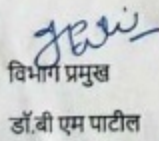 विभाग प्रमुख
डॉ.बी एम पाटील